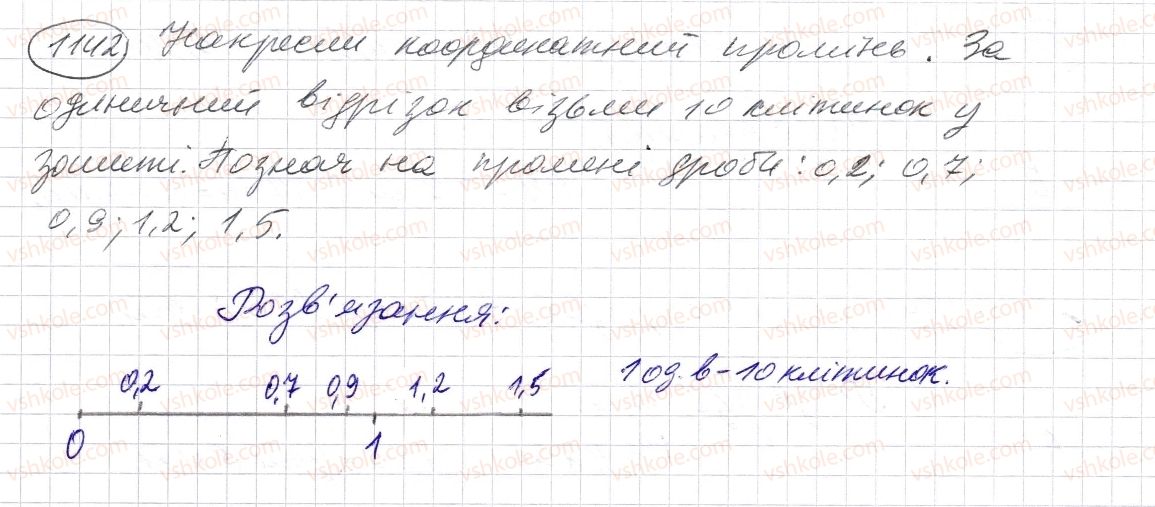 1142 Накресли координатний промінь. За
одиничний відрізок візьми 10 клітинок у
зошиті. Познач на промені дроби: 0,2; 0,7;
0,9; 1,2; 1,5.
Розв'язання:
0,2 0,7 0,9 1,2 1,5
1 од. в – 10 клітинок.
0 1